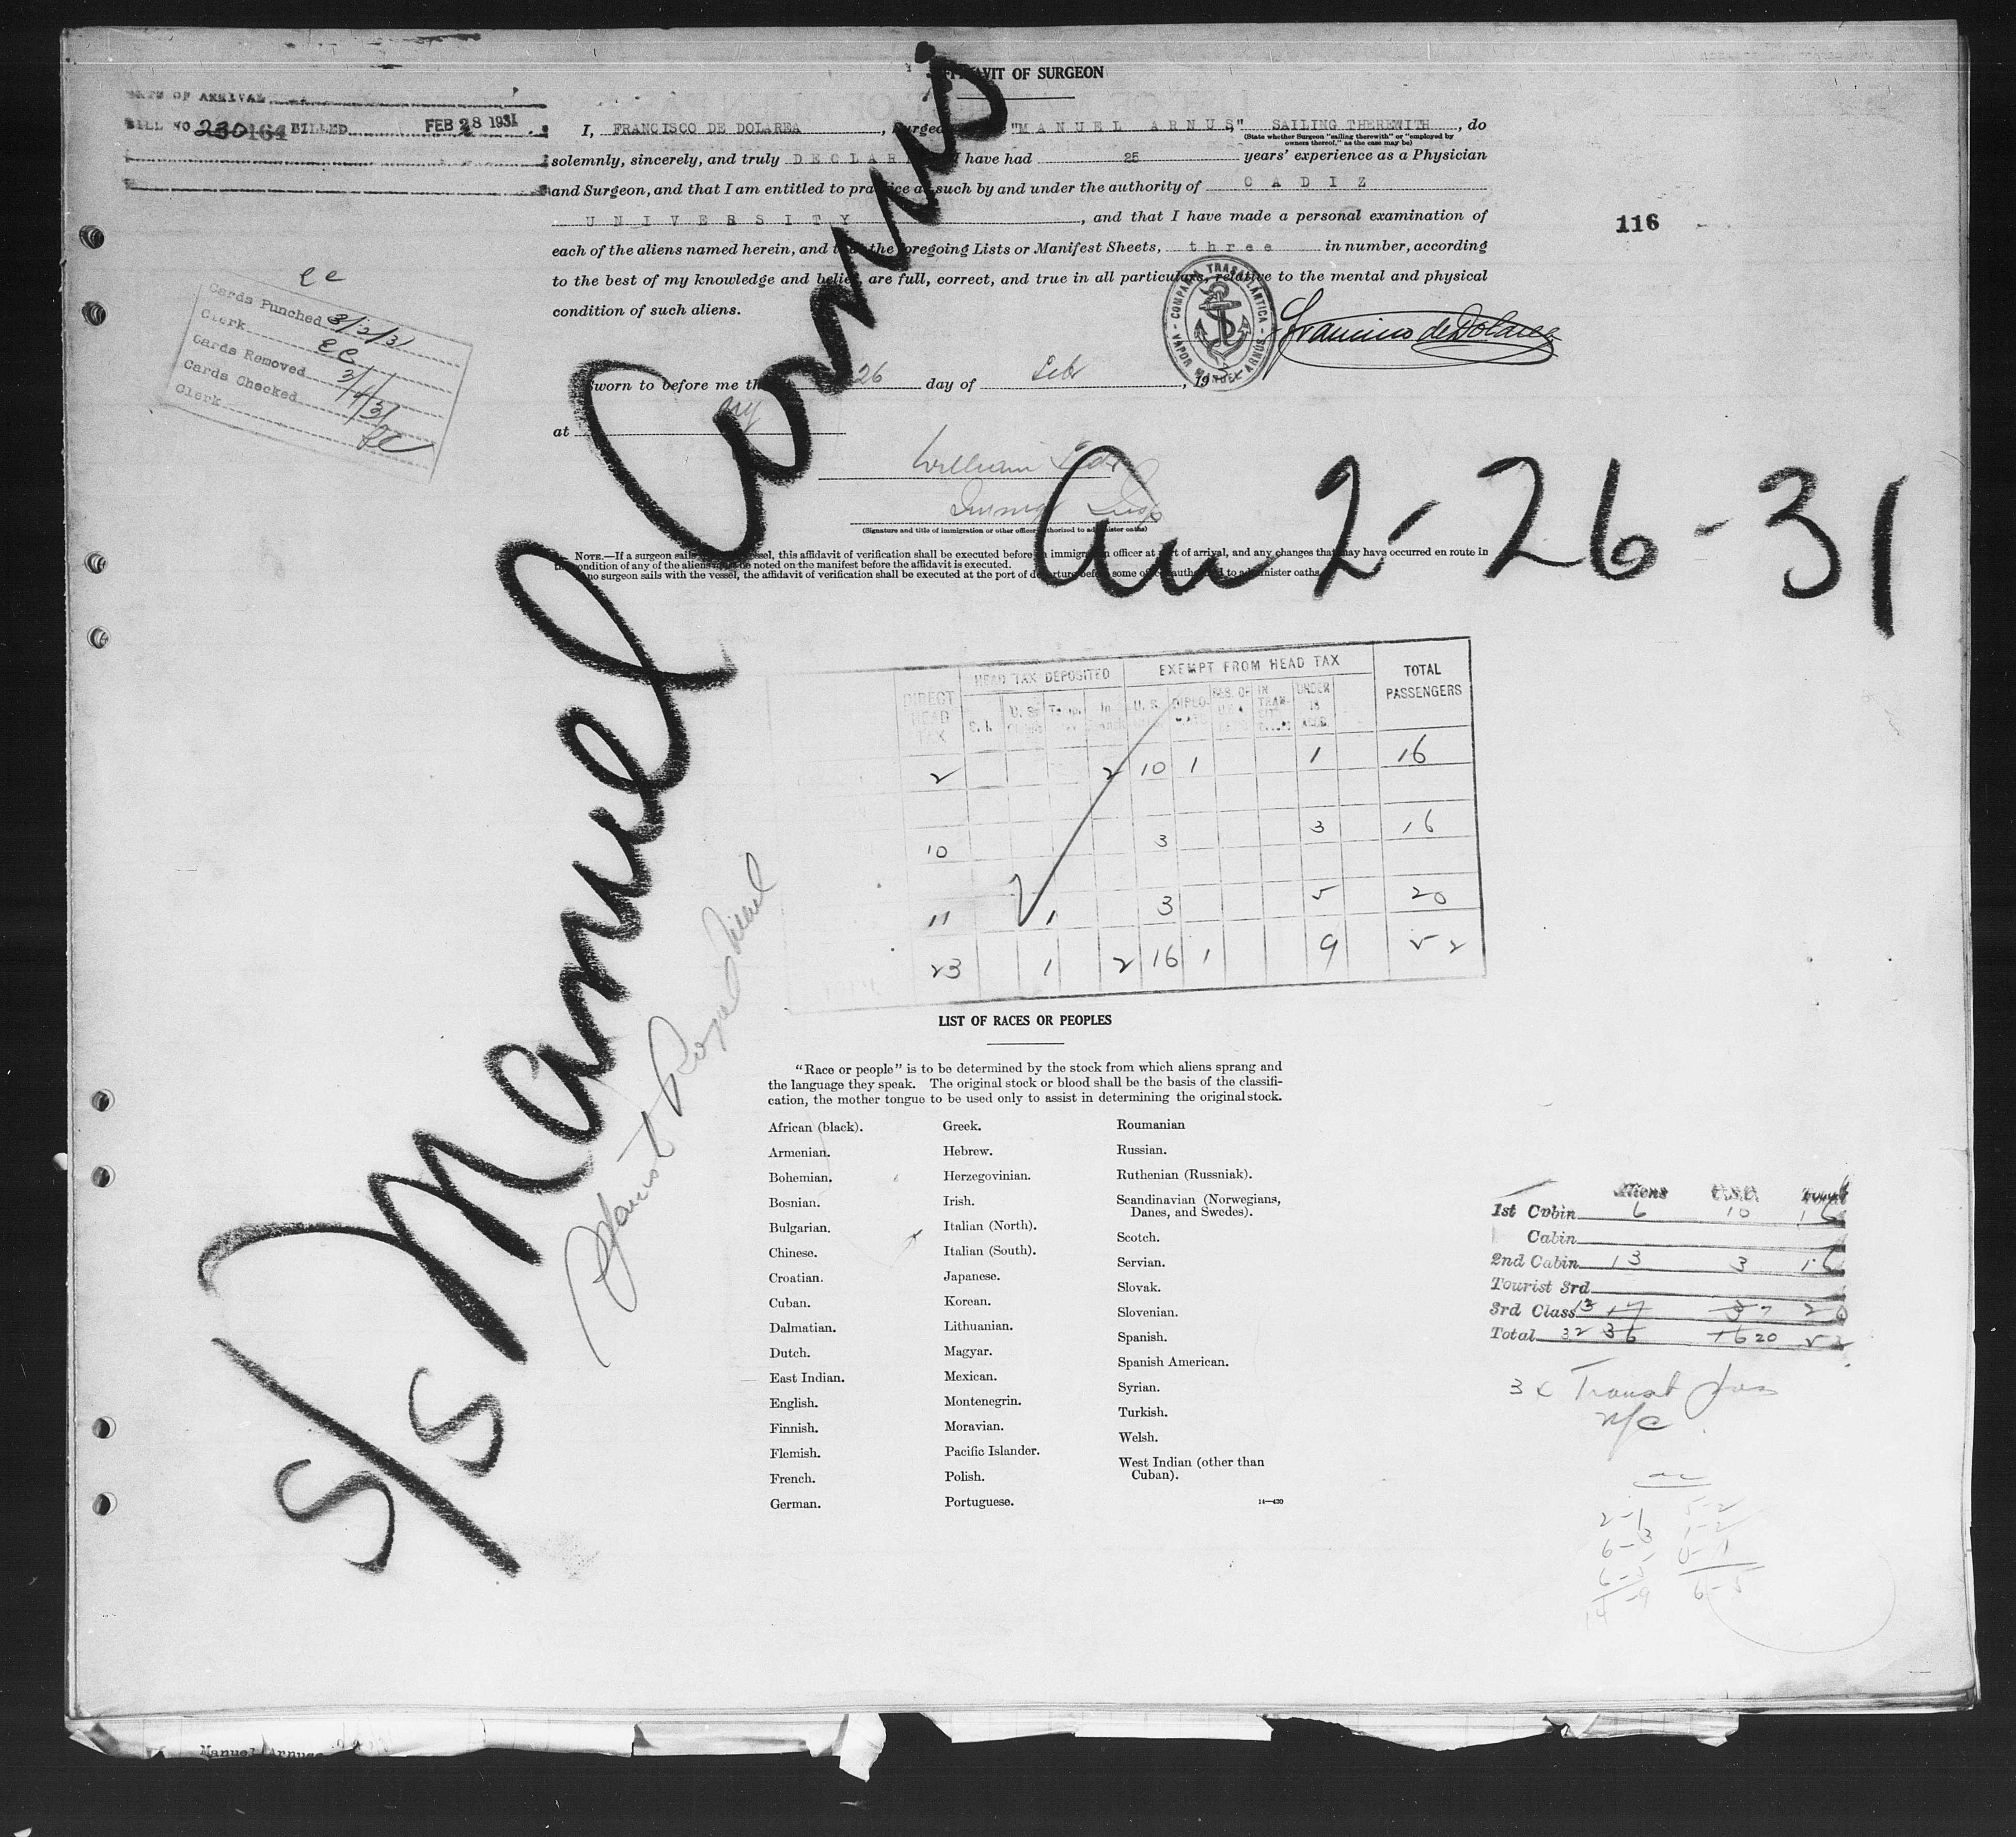 AFFIDAVIT OF SURGEON
DATE OF ARRIVAL
BILL NO 230164 BILLED FEB 28 1931
I, FRANCISCO DE DOLAREA, Surgeon "MANUEL ARNUS," SAILING THEREWITH, do
(State whether Surgeon "sailing therewith" or "employed by
owners thereof," as the case may be)
solemnly, sincerely, and truly DECLARE I have had 25 years' experience as a Physician
and Surgeon, and that I am entitled to practice as such by and under the authority of CADIZ
UNIVERSITY, and that I have made a personal examination of
116
each of the aliens named herein, and that the foregoing Lists or Manifest Sheets, three in number, according
to the best of my knowledge and belief, are full, correct, and true in all particulars, relative to the mental and physical
condition of such aliens.
COMPAÑIA TRASATLANTICA
VAPOR MANUEL ARNÚS
Francisco de Dolarea
CC
Cards Punched 3/2/31
Clerk CC
Cards Removed 3/4/31
Cards Checked
Clerk
Sworn to before me this 26 day of Feb, 193
at NY
William
Immig Insp
(Signature and title of immigration or other officer authorized to administer oaths)
NOTE.—If a surgeon sails vessel, this affidavit of verification shall be executed before an immigration officer at port of arrival, and any changes that may have occurred en route in
the condition of any of the aliens must be noted on the manifest before the affidavit is executed.
no surgeon sails with the vessel, the affidavit of verification shall be executed at the port of departure before some officer authorized to administer oaths.
S/S Manuel Arnus
Arr 2-26-31
DIRECT HEAD TAX HEAD TAX DEPOSITED EXEMPT FROM HEAD TAX TOTAL PASSENGERS
S. I. U. S. Temp. In U. S. DIPLO- RES. OF U.S.A. IN TRAN- SIT UNDER 16 ACCD.
2 2 10 1 1 16
10 3 3 16
11 1 3 5 20
23 1 2 16 1 9 52
LIST OF RACES OR PEOPLES
"Race or people" is to be determined by the stock from which aliens sprang and
the language they speak. The original stock or blood shall be the basis of the classifi-
cation, the mother tongue to be used only to assist in determining the original stock.
African (black).
Armenian.
Bohemian.
Bosnian.
Bulgarian.
Chinese.
Croatian.
Cuban.
Dalmatian.
Dutch.
East Indian.
English.
Finnish.
Flemish.
French.
German.
Greek.
Hebrew.
Herzegovinian.
Irish.
Italian (North).
Italian (South).
Japanese.
Korean.
Lithuanian.
Magyar.
Mexican.
Montenegrin.
Moravian.
Pacific Islander.
Polish.
Portuguese.
Roumanian
Russian.
Ruthenian (Russniak).
Scandinavian (Norwegians,
Danes, and Swedes).
Scotch.
Servian.
Slovak.
Slovenian.
Spanish.
Spanish American.
Syrian.
Turkish.
Welsh.
West Indian (other than
Cuban).
14—430
Aliens U.S.C. Total
1st Cabin 6 10 16
Cabin
2nd Cabin 13 3 16
Tourist 3rd
3rd Class 13 17 3 7 20
Total 32 36 16 20 52
Transit
N/C
2-1
6-3
6-5
14-9
5-2
1-2
0-1
6-5
Manuel Arnus